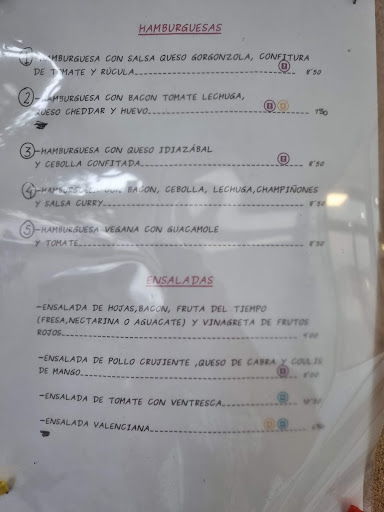 HAMBURGUESAS
1 -HAMBURGUESA CON SALSA QUESO GORGONZOLA, CONFITURA
DE TOMATE Y RÚCULA 8'50
2 -HAMBURGUESA CON BACON TOMATE LECHUGA,
QUESO CHEDDAR Y HUEVO
3 -HAMBURGUESA CON QUESO IDIAZÁBAL
Y CEBOLLA CONFITADA 8'50
4 -HAMBURGUESA CON BACON, CEBOLLA, LECHUGA, CHAMPIÑONES
Y SALSA CURRY 8'50
5 -HAMBURGUESA VEGANA CON GUACAMOLE
Y TOMATE 8'50
ENSALADAS
-ENSALADA DE HOJAS, BACON, FRUTA DEL TIEMPO
(FRESA, NECTARINA O AGUACATE) Y VINAGRETA DE FRUTOS
ROJOS
-ENSALADA DE POLLO CRUJIENTE ,QUESO DE CABRA Y COULIS
DE MANGO
-ENSALADA DE TOMATE CON VENTRESCA
-ENSALADA VALENCIANA